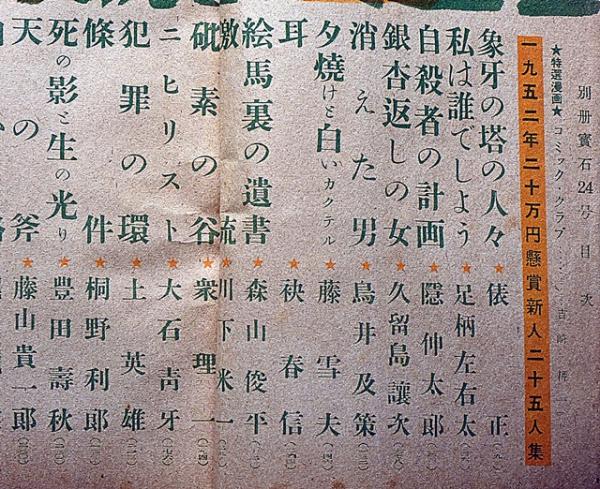 別册寳石24号目次
★特選漫画★コミック・クラブ
一九五二年二十万円懸賞新人二十五人集
象牙の塔の人々★俵正
私は誰でしよう★足柄左右太
自殺者の計画★隱伸太郎
銀杏返しの女★久留島讓次
消えた男★鳥井及策
夕燒けと白いカクテル★藤雪夫
耳★袂春信
絵馬裏の遺書★森山俊平
激流★川下米一
砒素の谷★衆理一
ニヒリスト★大石青牙
犯罪の環★上英雄
條件★桐野利郎
死の影と生の光り★豐田壽秋
天の斧★藤山貴一郎